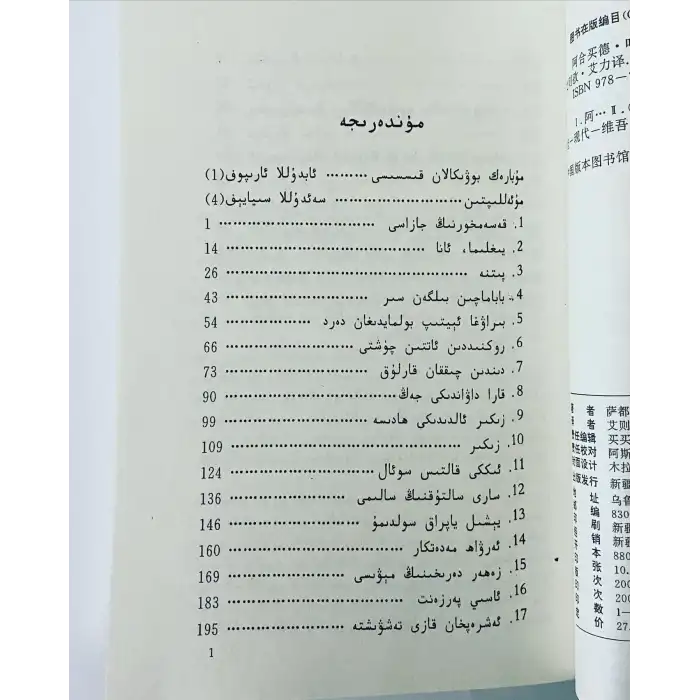 مۇندەرىجە
مۇبارەك بوۋىكالان قىسسىسى ········· ئابدۇللا ئارىپوف(1)
مۇئەللىپتىن ························· سەئدۇللا سىيايېف(4)
1. قەسەمخورنىڭ جازاسى ······························ 1
2. يىغلىما، ئانا ······································ 14
3. پىتنە ············································ 26
4. باباماچىن بىلگەن سىر ··························· 43
5. بىراۋغا ئېيتىپ بولمايدىغان دەرد ················ 54
6. روكنىددىن ئاتتىن چۈشتى ······················ 66
7. دىندىن چىققان قارلۇق ························· 73
8. قارا داۋاندىكى جەڭ ··························· 90
9. زىكىر ئالدىدىكى ھادىسە ······················ 99
10. زىكىر ········································ 109
11. ئىككى قالتىس سوئال ························· 124
12. سارى سالتۇقنىڭ سالىمى ······················ 136
13. يېشىل ياپراق سولدىمۇ ······················· 146
14. ئەرۋاھ مەدەتكار ····························· 160
15. زەھەر دەرىخىنىڭ مېۋىسى ···················· 169
16. ئاسىي پەرزەنت ······························ 183
17. ئەشرەپخان قازى تەشۋىشتە ·················· 195
1
图书在版编目(C
阿合买德·
·艾力译.
ISBN 978—
Ⅰ.阿… Ⅱ.
—现代—维吾
版本图书馆
者 萨都
者 艾则
责任编辑 买买
责任校对 阿斯
封面设计 木拉
出版发行 新疆
址 乌鲁
编 830
刷 新疆
销 新疆
本 880
张 10.
次 200
次 200
数 1—
价 27.